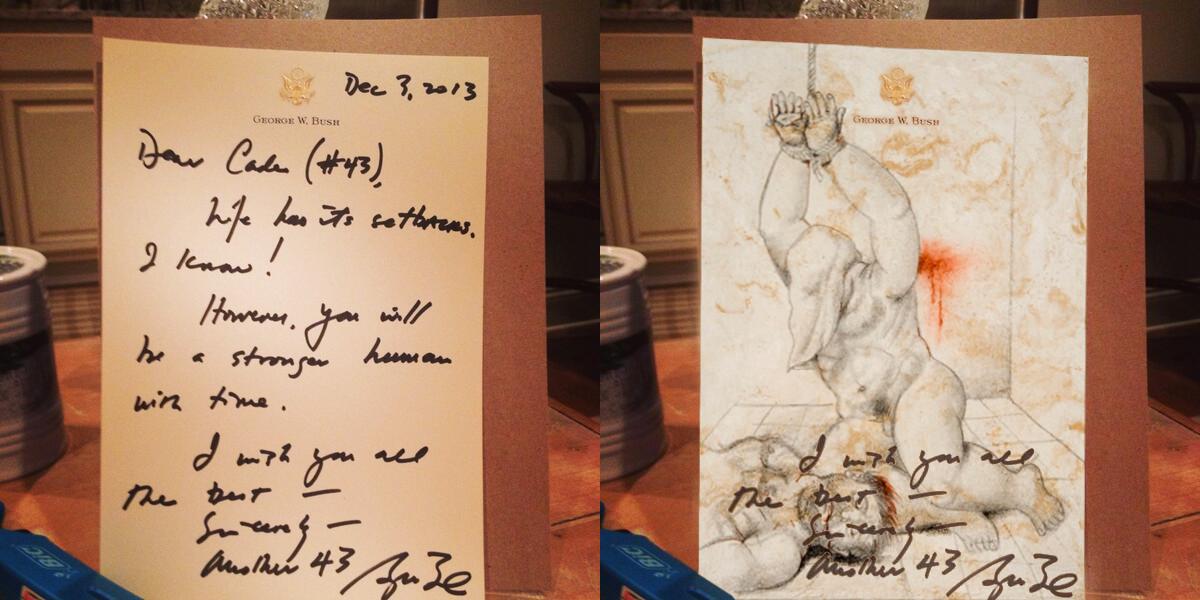 Dec 3, 2013
GEORGE W. BUSH
Dear Cade (#43),
Life has its setbacks.
I know!
However, you will
be a stronger human
with time.
I wish you all
the best —
Sincerely —
Another 43
BIC
GEORGE W. BUSH
I wish you all
the best —
Sincerely —
Another 43
BIC